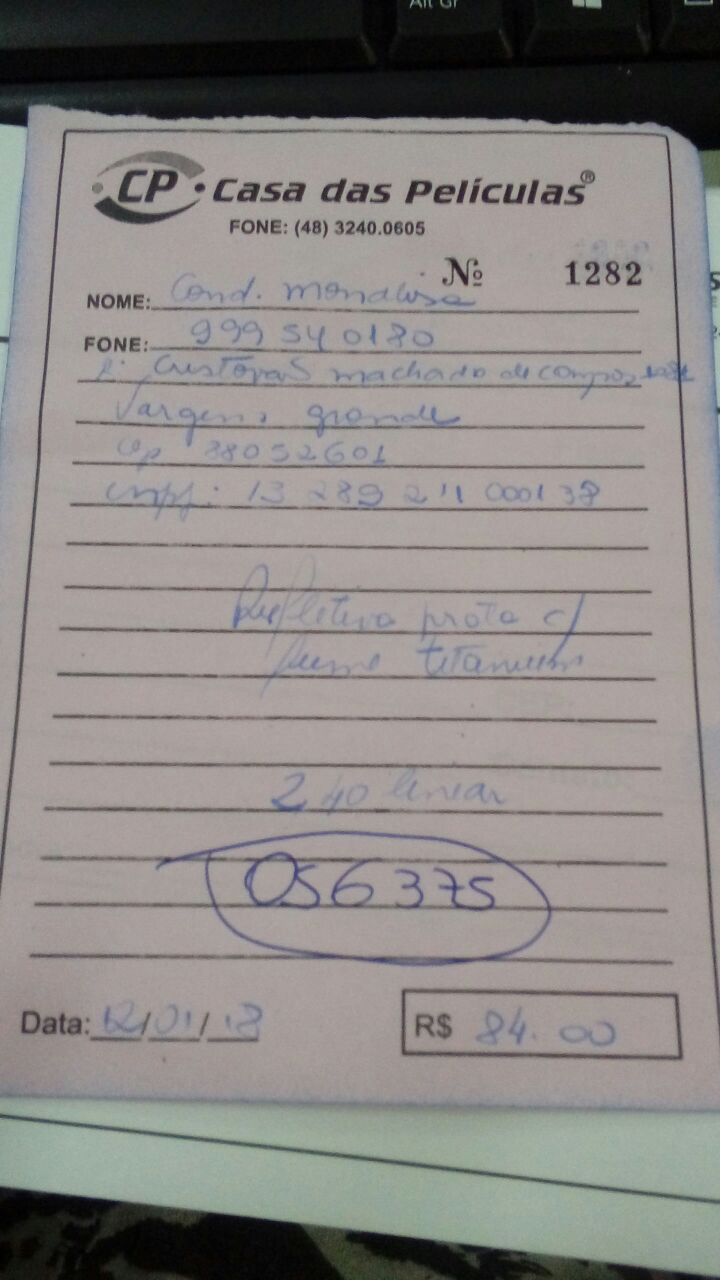 Alt Gr
CP • Casa das Películas®
FONE: (48) 3240.0605
Nº 1282
NOME: Cond.
FONE: 999 540180
machado de campos
Vargem grande
cep 88052601
cnpj: 13 289 211 0001 38
Refletiva prata c/
fume titanium
2,40 linear
056375
Data: 12/01/18
R$ 84.00